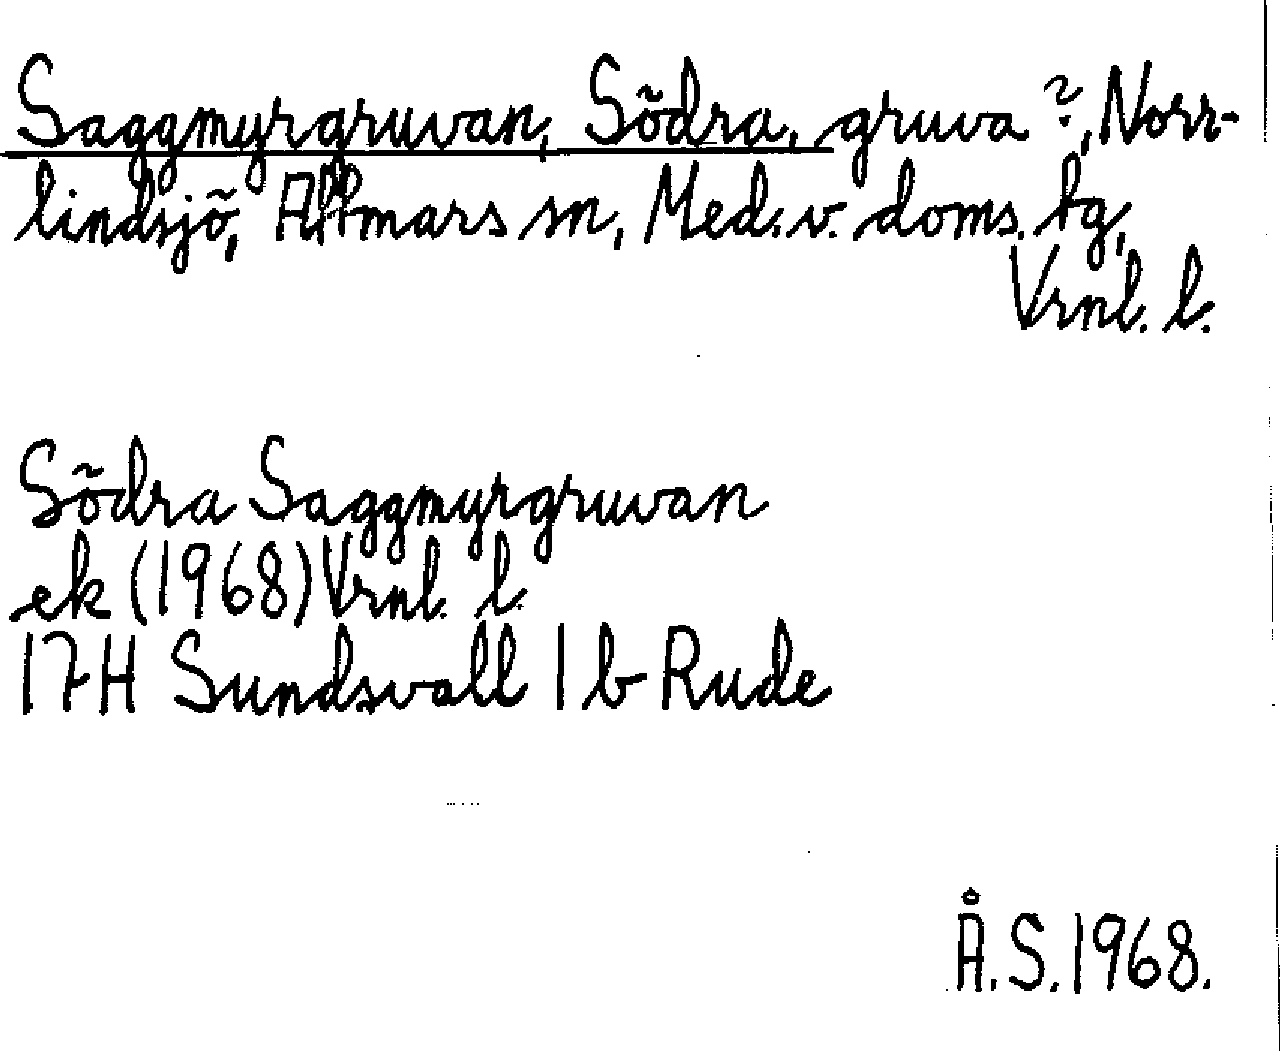 Saggmyrgruvan, Södra, gruva ?, Norr-
lindsjö, Attmars sn, Med. v. doms. tg,
Vrnl. l.
Södra Saggmyrgruvan
ek (1968) Vrnl. l.
17H Sundsvall 1 b Rude
Å.S. 1968.